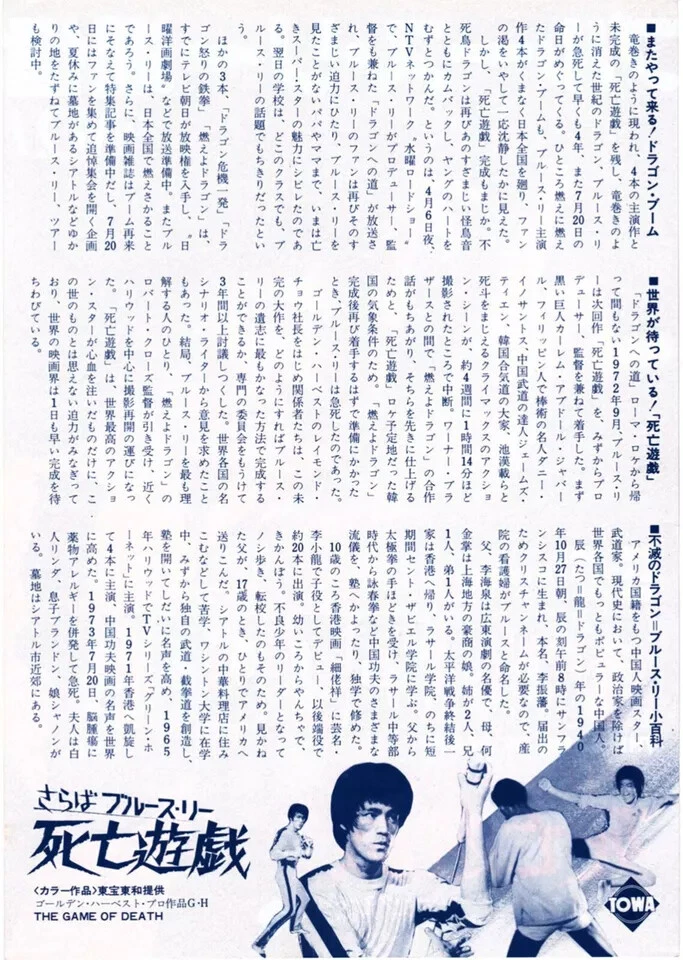 ■またやって来る！ドラゴン・ブーム
竜巻きのように現われ、4本の主演作と
未完成の「死亡遊戯」を残し、竜巻きのよ
うに消えた世紀のドラゴン、ブルース・リ
ーが急死して早くも4年、また7月20日の
命日がめぐってくる。ひところ燃えに燃え
たドラゴン・ブームも、ブルース・リー主演
作4本がくまなく日本全国を廻り、ファン
の渇をいやして一応沈静したかに見えた。
しかし、「死亡遊戯」完成もまじか。不
死鳥ドラゴンは再びあのすさまじい怪鳥音
とともにカムバックし、ヤングのハートを
むずとつかんだ。というのは、4月6日夜、
NTVネットワーク〝水曜ロードショー〟
で、ブルース・リーがプロデューサー、監
督をも兼ねた「ドラゴンへの道」が放送さ
れ、ブルース・リーのファンは再びそのす
ざまじい迫力にひたり、ブルース・リーを
見たことがないパパやママまで、いまは亡
きスーパー・スターの魅力にシビレたのであ
る。翌日の学校は、どこのクラスでも、ブ
ルース・リーの話題でもちきりだったとい
う。
ほかの3本、「ドラゴン危機一発」、「ドラ
ゴン怒りの鉄拳」「燃えよドラゴン」は、
すでにテレビ朝日が放映権を入手し、〝日
曜洋画劇場〟などで放送準備中。またブル
ース・リーは、日本全国で燃えさかること
であろう。さらに、映画雑誌はブーム再来
にそなえて特集記事を準備中だし、7月20
日にはファンを集めて追悼集会を開く企画
や、夏休みに墓地があるシアトルなどゆか
りの地をたずねてブルース・リー、ツアー
も検討中。
■世界が待っている！「死亡遊戯」
「ドラゴンへの道」ローマ・ロケから帰
って間もない1972年9月、ブルース・リ
ーは次回作「死亡遊戯」を、みずからプロ
デューサー、監督を兼ねて着手した。まず
黒い巨人カレーム・アブドール・ジャバー
ル、フィリッピン人で棒術の名人ダニー・
イノサントス、中国武道の達人ジェームズ・
ティエン、韓国合気道の大家、池漢載らと
死斗をまじえるクライマックスのアクショ
ン・シーンが、約4週間に1時間14分ほど
撮影されたところで中断。ワーナー・ブラ
ザースとの間で、「燃えよドラゴン」の合作
話がもちあがり、そちらを先きに仕上げる
ためと、「死亡遊戯」ロケ予定地だった韓
国の気象条件のため。「燃えよドラゴン」
完成後再び着手するはずで準備にかかった
とき、ブルース・リーは急死したのであった。
ゴールデン・ハーベストのレイモンド・
チョウ社長をはじめ関係者たちは、この未
完の大作を、どのようにすればブルース・
リーの遺志に最もかなった方法で完成する
ことができるか、専門の委員会をもうけて
3年間以上討議しつくした。世界各国の名
シナリオ・ライターから意見を求めたこと
もあった。結局、ブルース・リーを最も理
解する人のひとり、「燃えよドラゴン」の
ロバート・クローズ監督が引き受け、近く
ハリウッドを中心に撮影再開の運びになっ
た。「死亡遊戯」は、世界最高のアクショ
ン・スターが心血を注いだものだけに、こ
の世のものとは思えない迫力がみなぎって
おり、世界の映画界は1日も早い完成を待
ちわびている。
■不滅のドラゴン＝ブルース・リー小百科
アメリカ国籍をもつ中国人映画スター、
武道家。現代史において、政治家を除けば
世界各国でもっともポピュラーな中国人。
辰（たつ＝龍＝ドラゴン）年の1940
年10月27日朝、辰の刻午前8時にサンフラ
ンシスコに生まれ、本名、李振藩。届出の
ためクリスチャンネームが必要なので、産
院の看護婦がブルースと命名した。
父、李海泉は広東演劇の名優で、母、何
金掌は上海地方の豪商の娘。姉が2人、兄
1人、弟1人がいる。太平洋戦争終結後一
家は香港へ帰り、ラサール学院、のちに短
期間セント・ザビエル学院に学ぶ。父から
太極拳の手ほどきを受け、ラサール中等部
時代から詠春拳など中国功夫のさまざまな
流儀を、塾へかよったり、独学で修めた。
10歳のころ香港映画「細佬祥」に芸名・
李小龍で子役としてデビュー、以後端役で
約20本に出演。幼いころからやんちゃで、
きかんぼう。不良少年のリーダーとなって
ノシ歩き、転校したのもそのため。見かね
た父が、17歳のとき、ひとりでアメリカへ
送りこんだ。シアトルの中華料理店に住み
こむなどして苦学、ワシントン大学に在学
中、みずから独自の武道、截拳道を創造し、
塾を開いてしだいに名声を高め、1965
年ハリウッドでTVシリーズ「グリーン・ホ
ーネット」に主演。1971年香港へ凱旋し
て4本に主演、中国功夫映画の名声を世界
に高めた。1973年7月20日、脳腫瘍に
薬物アレルギーを併発して急死。夫人は白
人リンダ、息子ブランドン、娘シャノンが
いる。墓地はシアトル市近郊にある。
さらば ブルース・リー
死亡遊戯
〈カラー作品〉東宝東和提供
ゴールデン・ハーベスト・プロ作品G・H
THE GAME OF DEATH
TOWA